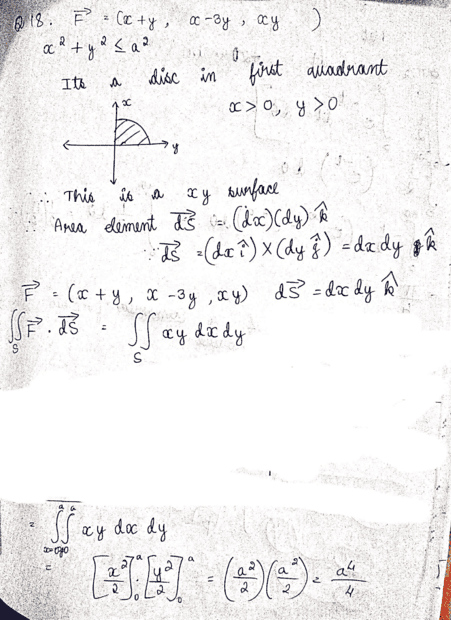 Q18. F⃗ = (x+y, x-3y, xy )
x² + y² ≤ a²
Its a disc in first quadrant
x > 0, y > 0
x
y
∴ This is a xy surface
∴ Area element dS⃗ = (dx)(dy) k̂
∵ dS⃗ = (dx î) × (dy ĵ) = dx dy k̂
F⃗ = (x + y, x -3y, xy) dS⃗ = dx dy k̂
∬_S F⃗ . dS⃗ = ∬_S xy dx dy
= ∫_{x=0}^{a} ∫_{y=0}^{a} xy dx dy
= [x²/2]_0^a . [y²/2]_0^a = (a²/2)(a²/2) = a⁴/4